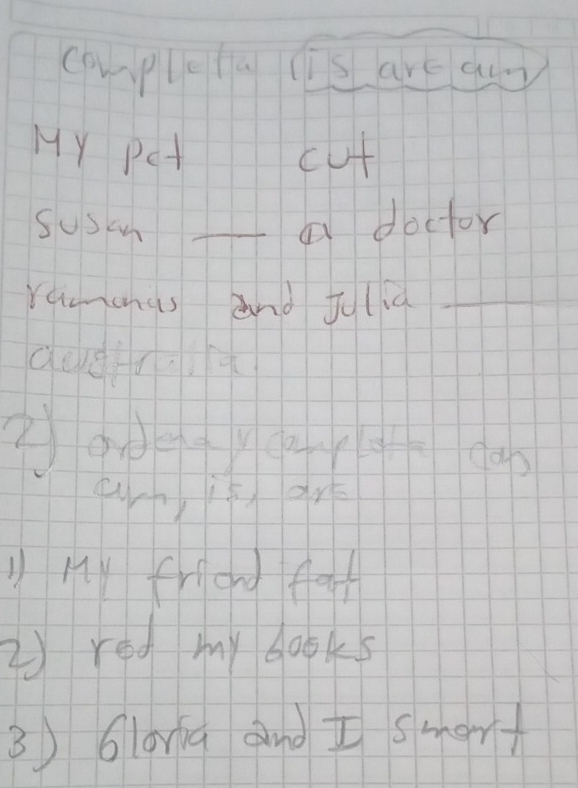 completa (is are am)
MY pet cut
susan — a doctor
ramonas and Julia —
australia.
2) ordena y completa con
am, is, are
1) MY friend fat
2) red my books
3) Gloria and I smart